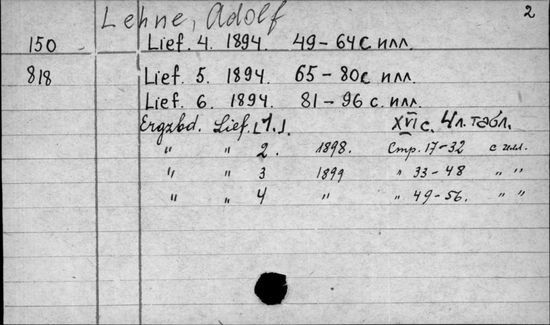 Lehne, Adolf 2
150 Lief. 4. 1894. 49-64 с илл.
818 Lief. 5. 1894. 65-80 с илл.
Lief. 6. 1894. 81-96 с. илл.
Ergzbd. Lief. [1.]. XVI с. 4 л. табл.
" " 2. 1898. Стр. 17-32 с илл.
" " 3 1899 " 33-48 " "
" " 4 " " 49-56. " "